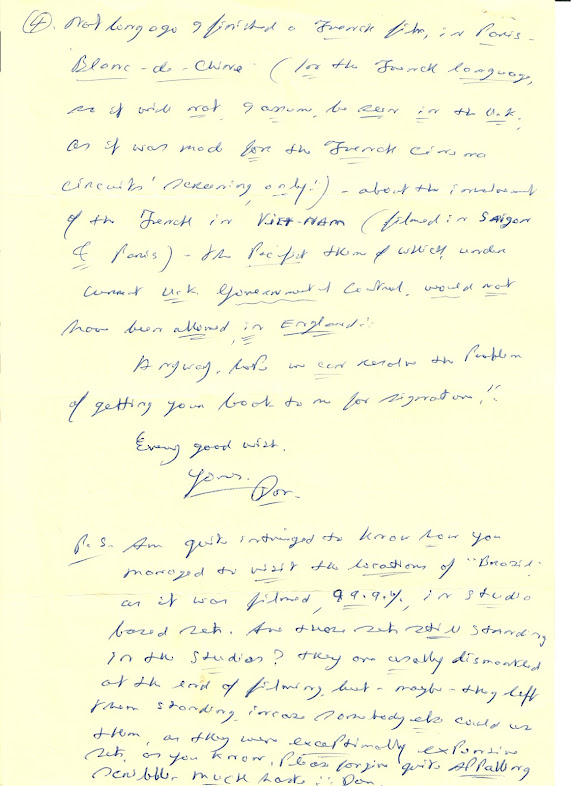 ④. Not long ago I finished a French film, in Paris -
Blanc-de-Chine (in the French language,
so it will not, I assume, be seen in the U.K.
as it was made for the French cinema
circuits' screening, only!) - about the involvement
of the French in VIET-NAM (filmed in Saigon
& Paris) - the Pacifist theme of which, under
current U.K. Government Control, would not
have been allowed, in England!
Anyway, hope we can resolve the Problem
of getting your book to me for signature!!
Every good wish.
Yours.
Don.
P.S. Am quite intrigued to know how you
managed to visit the locations of "Brazil"
as it was filmed, 99.9%, in studio
based sets. Are those sets still standing
in the studios? They are usually dismantled
at the end of filming, but - maybe - they left
them standing, incase somebody else could use
them, as they were exceptionally expensive
sets, as you know. Please forgive quite appalling
scribble. Much haste!! Don.